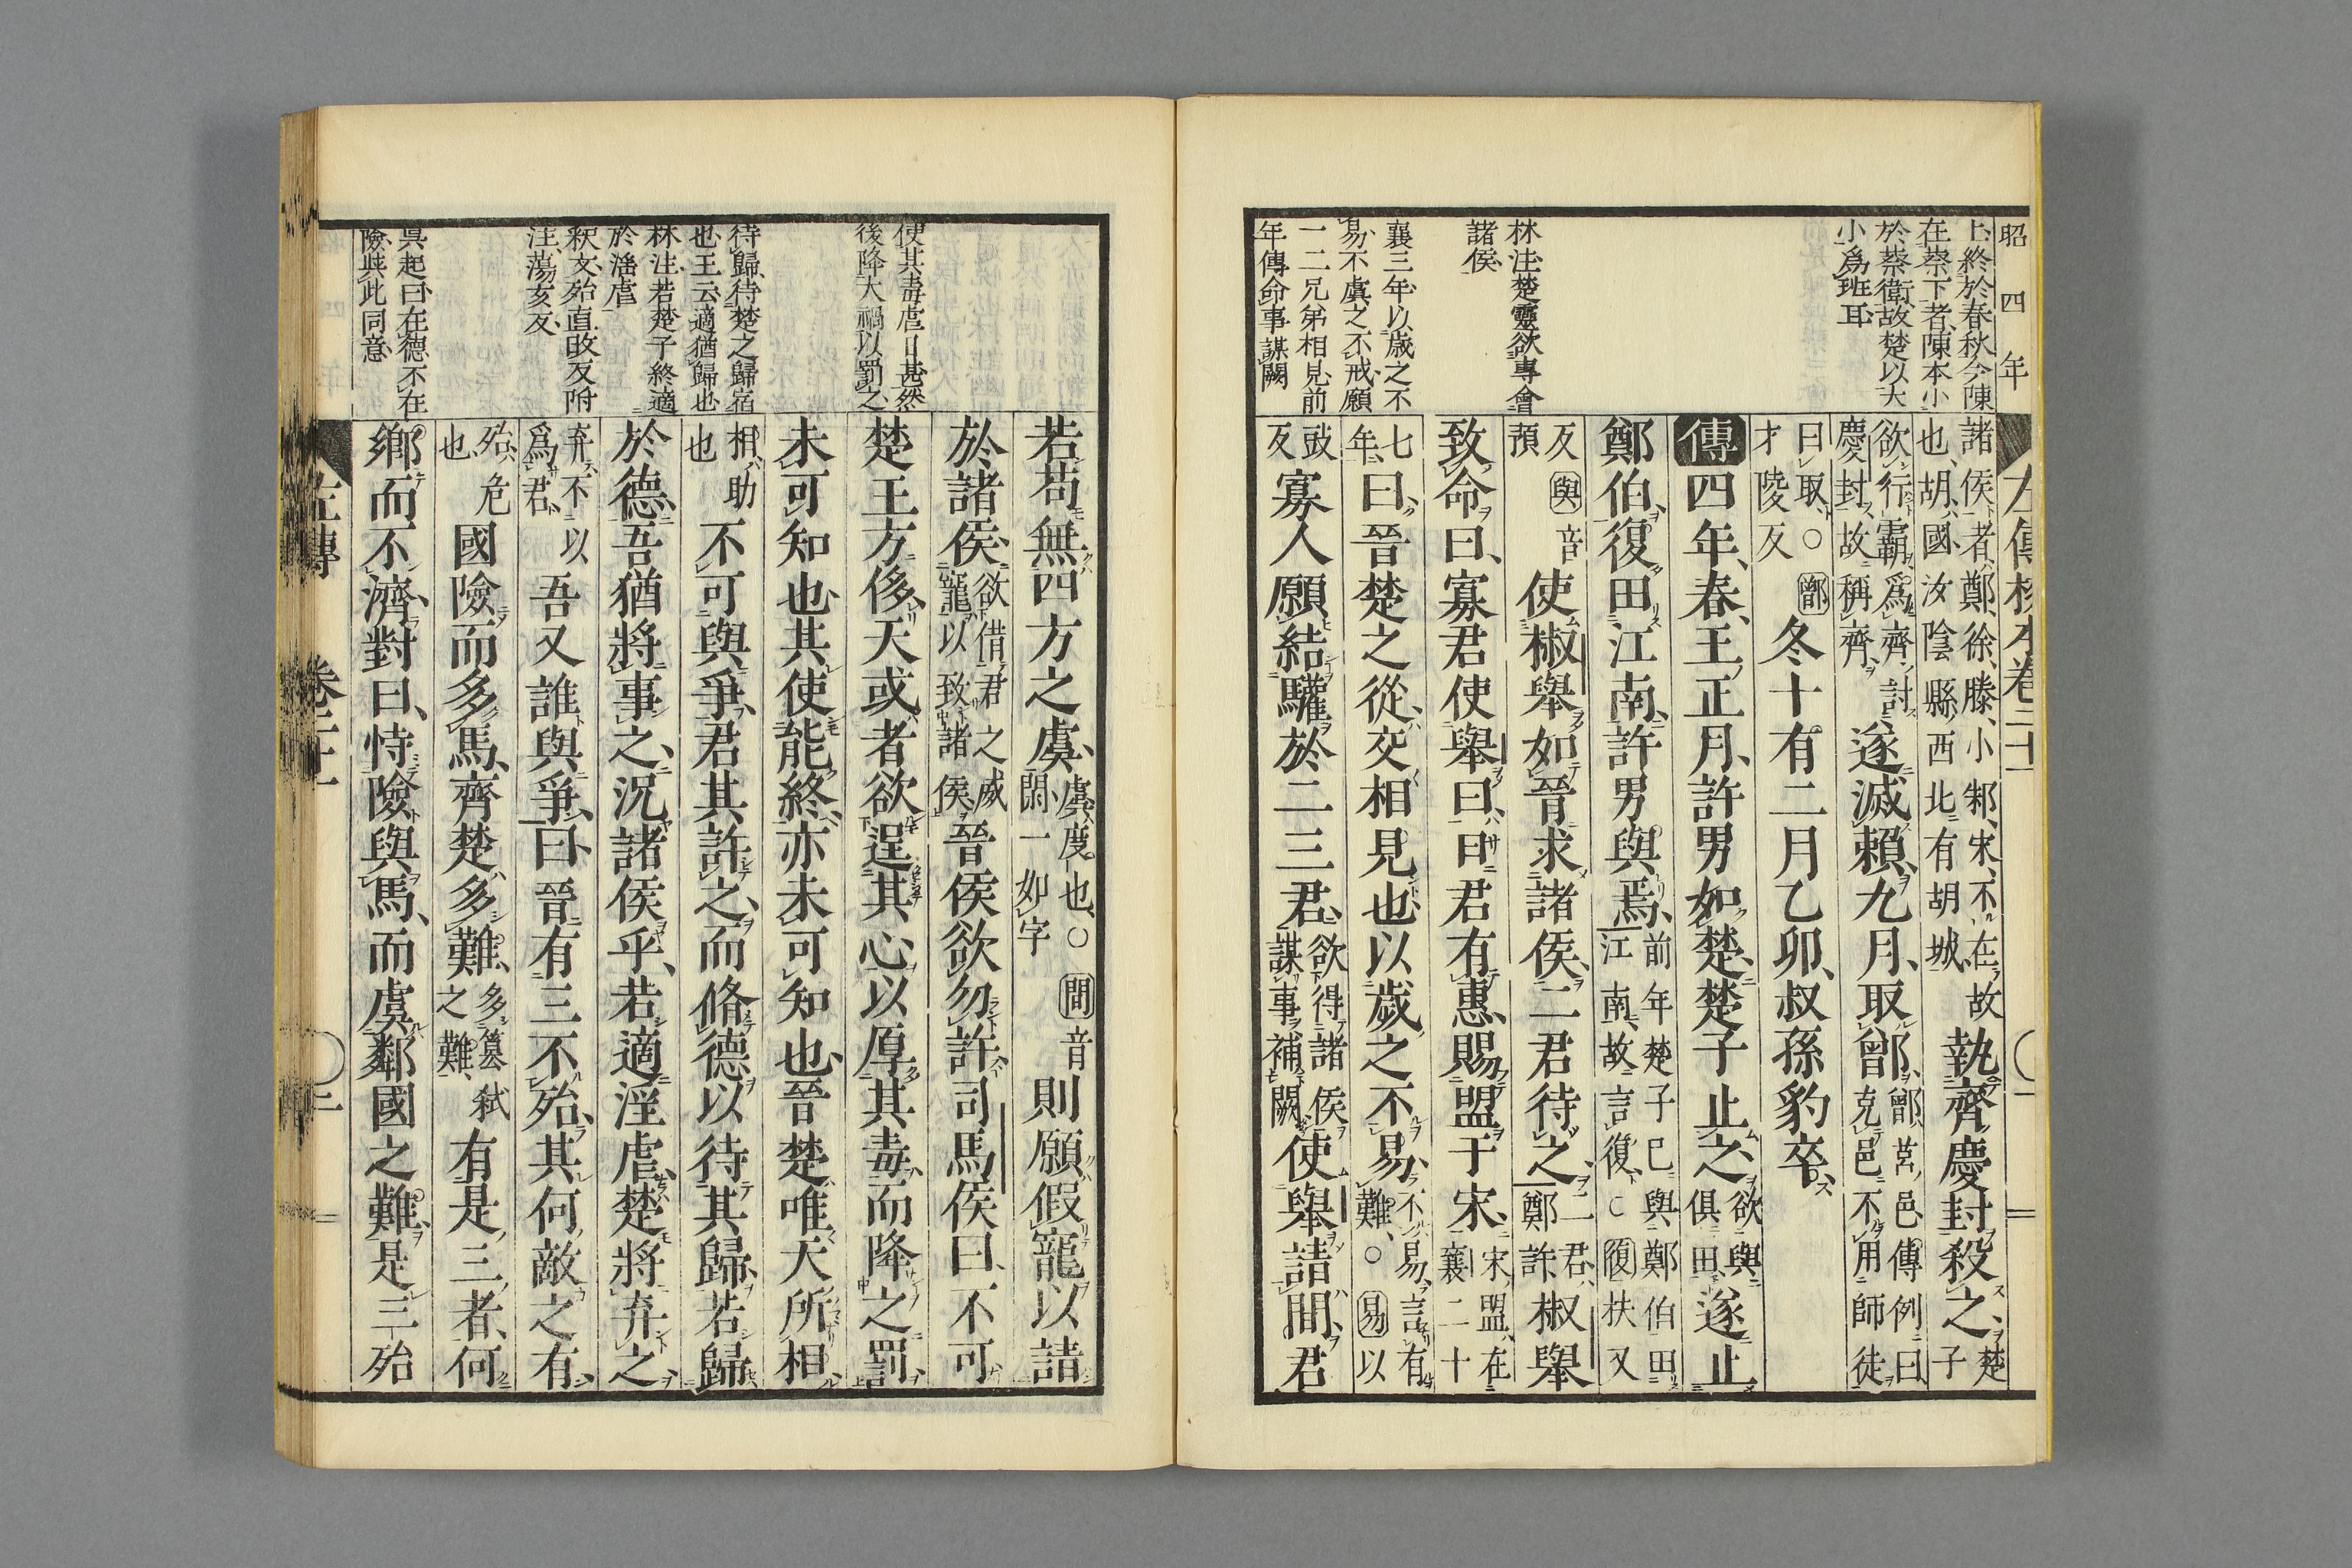 昭四年
上終於春秋今陳
在蔡下者陳本小
於蔡衛故楚以大
小爲班耳
林注楚靈欲專會
諸侯
襄三年以歲之不
易不虞之不戒願
一二兄弟相見前
年傳命事謀闕
左傳校本卷二十一
諸侯者鄭徐滕小邾宋不在故
也胡國汝陰縣西北有胡城
執齊慶封殺之
楚子
欲行霸爲齊討
慶封故稱齊
遂滅賴九月取鄫
鄫莒邑傳例曰
克邑不用師徒
曰取○
才陵反
鄫
冬十有二月乙卯叔孫豹卒
傳四年春王正月許男如楚楚子止之
欲與
俱田
遂止
鄭伯復田江南許男與焉
前年楚子已與鄭伯田
江南故言復○復扶又
反與音
預
使椒舉如晉求諸侯二君待之
二君
鄭許
椒舉
致命曰寡君使舉曰曰君有惠賜盟于宋
宋盟在
襄二十
七
年
曰晉楚之從交相見也以歲之不易
不易言有
難○易以
豉
反
寡人願結驩於二三君
欲得諸侯
謀事補闕
使舉請間君
使其毒虐日甚然
後降大禍以罰之
待歸待楚之歸宿
也王云適猶歸也
林注若楚子終適
於滛虐
釈文殆直改反附
注蕩亥反
眞起曰在德不在
險與此同意
若苟無四方之虞
虞度也○間音
閑一如字
則願假寵以請
於諸侯
欲借君之威
寵以致諸侯
晉侯欲勿許司馬侯曰不可
楚王方侈天或者欲逞其心以厚其毒而降之罰
未可知也其使能終亦未可知也晉楚唯天所相
相助
也
不可與爭君其許之而脩德以待其歸若歸
於德吾猶將事之況諸侯乎若適淫虐楚將弃之
弃不以
爲君
吾又誰與爭曰晉有三不殆其何敵之有
殆危
也
國險而多馬齊楚多難
多簒弑
之難
有是三者何
鄉而不濟對曰恃險與馬而虞鄰國之難是三殆
左傳
卷二十一
二